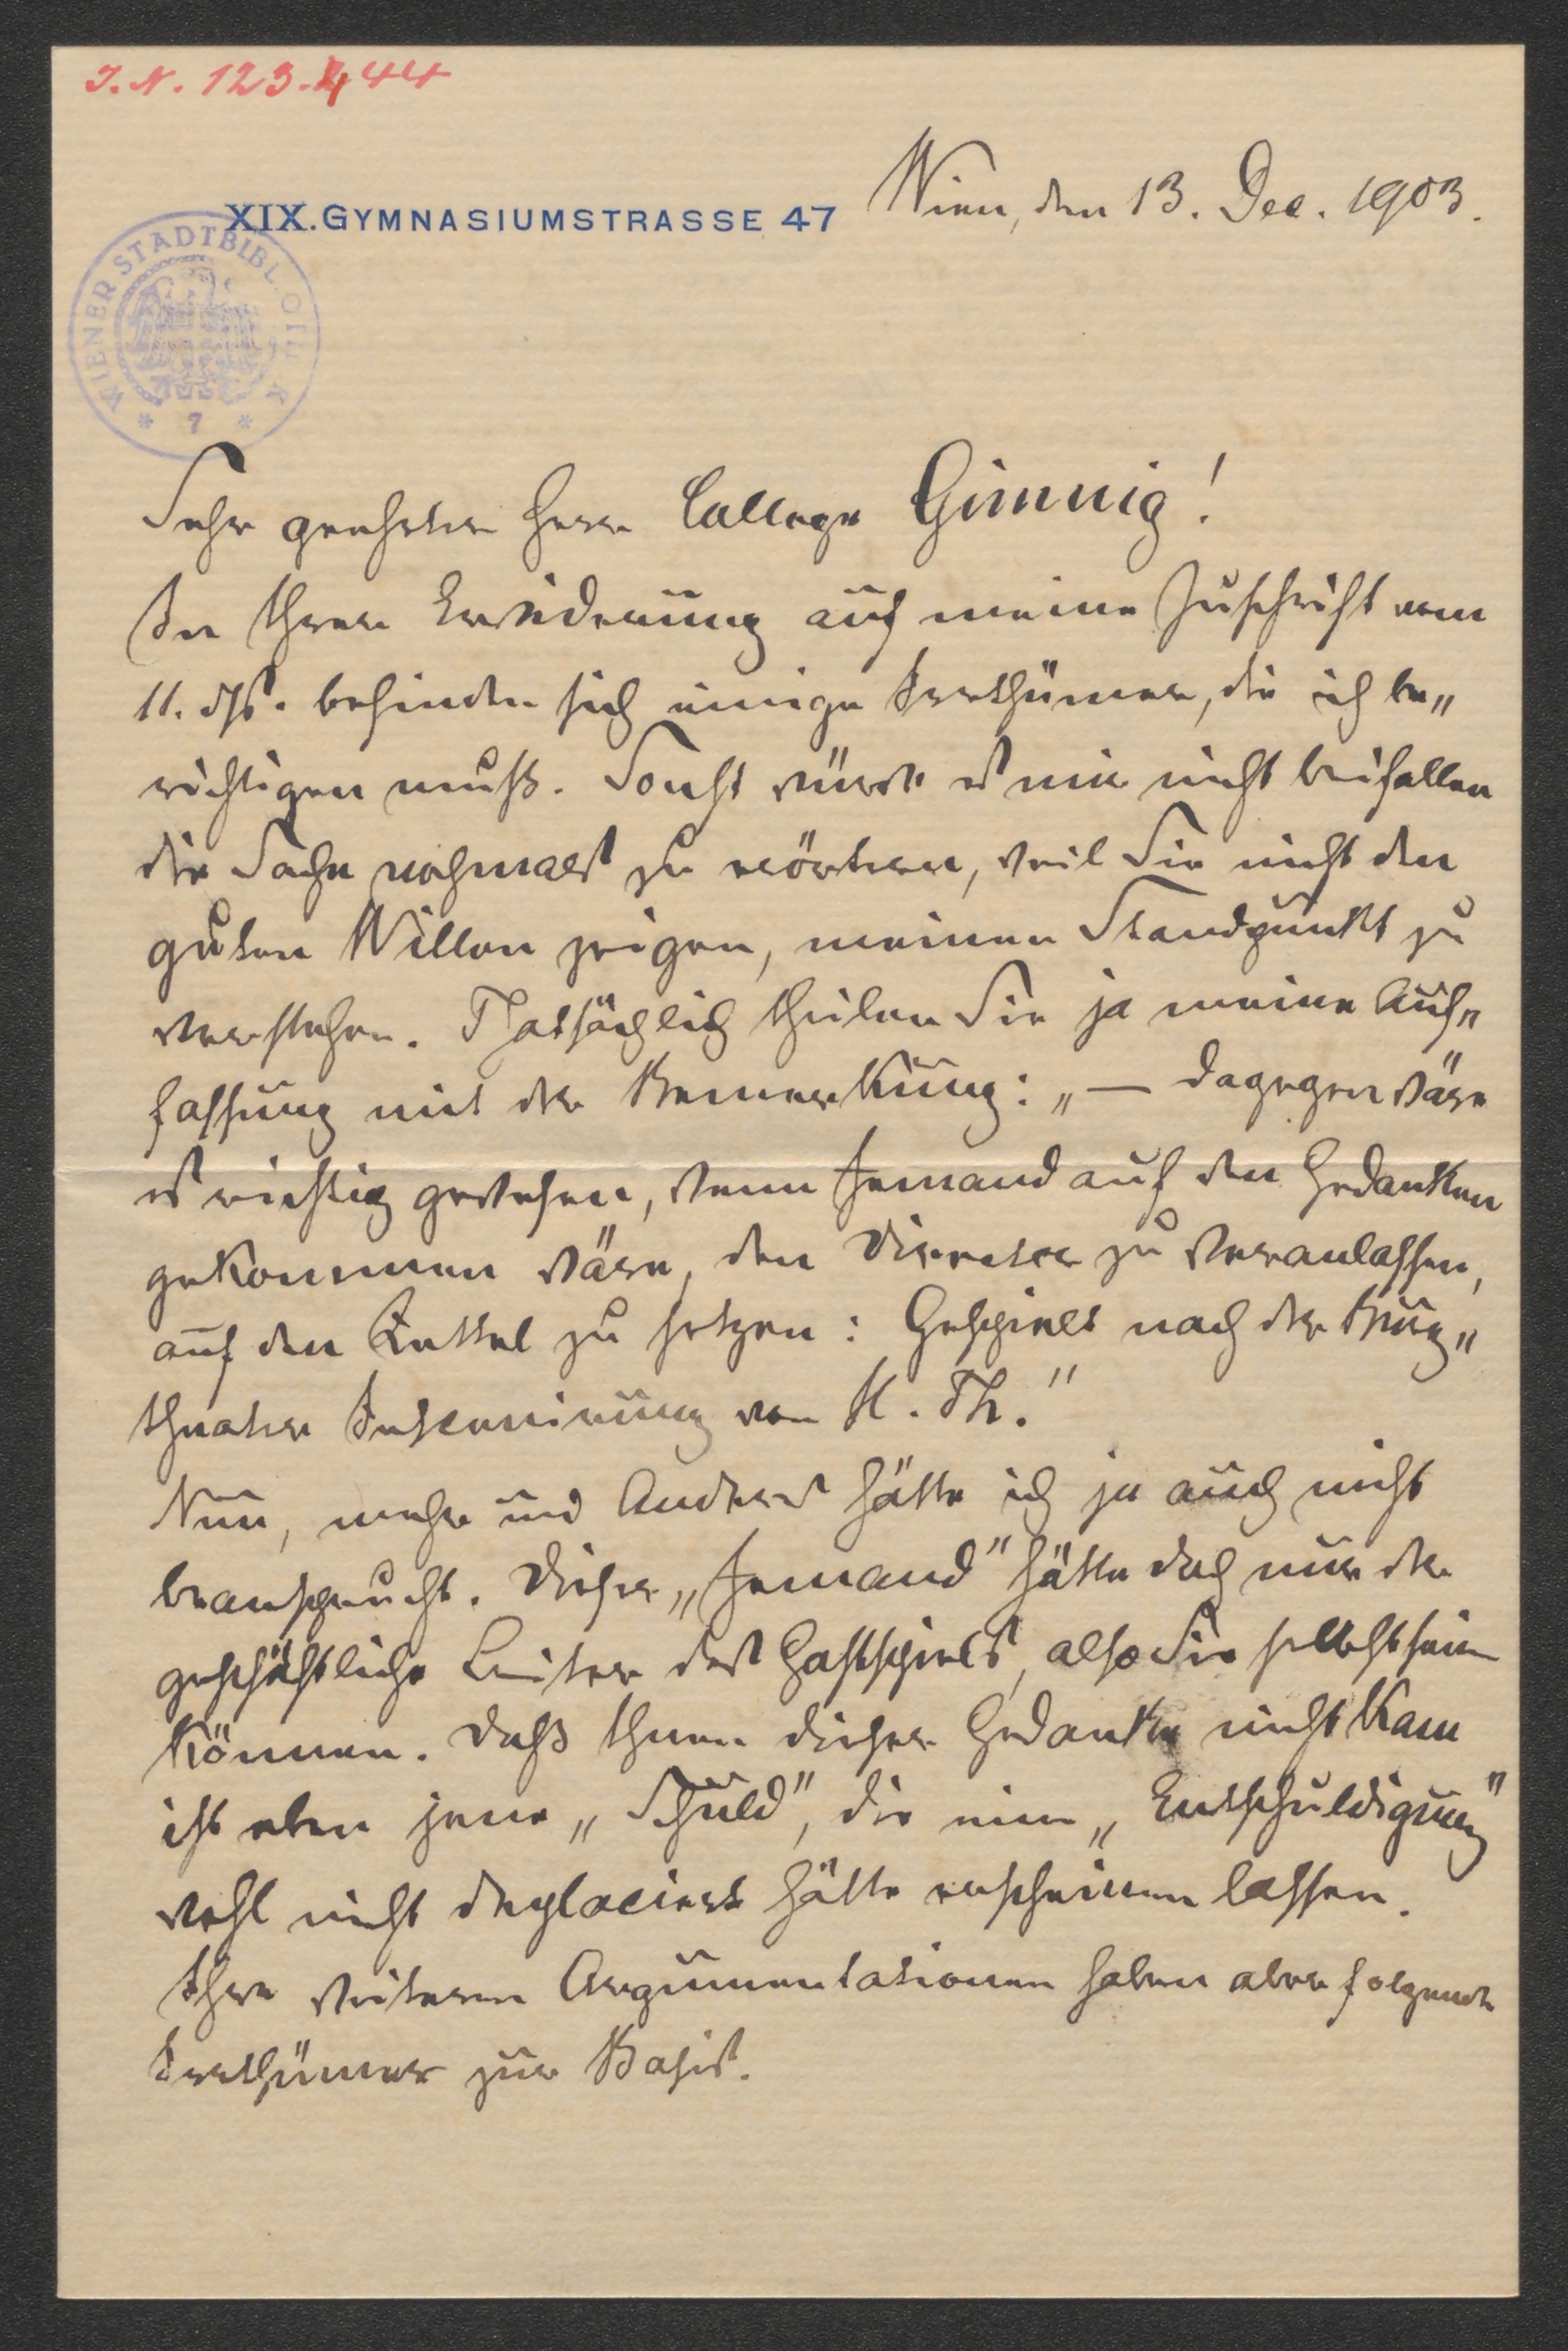 J. N. 123.444
Wien, den 13. Dec. 1903.
XIX. GYMNASIUMSTRASSE 47
WIENER STADTBIBLIOTHEK
* 7 *
Sehr geehrter Herr College Gimnig!
In Ihrer Erwiderung auf meine Zuschrift vom
11. ds. befinden sich einige Irrthümer, die ich be„
richtigen muß. Sonst würde es mir nicht beifallen
die Sache nochmals zu erörtern, weil Sie nicht den
guten Willen zeigen, meinen Standpunkt zu
verstehen. Thatsächlich theilen Sie ja meine Auf„
fassung mit der Bemerkung: „— dagegen wäre
es richtig gewesen, wenn Jemand auf den Gedanken
gekommen wäre, den Director zu veranlassen,
auf den Zettel zu setzen: Gespielt nach der Burg„
theater Inscenirung von H. Th."
Nun, mehr und Anderes hätte ich ja auch nicht
beansprucht. Dieser „Jemand" hätte doch nur der
geschäftliche Leiter des Gastspiels, also Sie selbst sein
können. Daß Ihnen dieser Gedanke nicht kam
ist eben jene „Schuld", die eine „Entschuldigung"
wohl nicht deplaciert hätte erscheinen lassen.
Ihre weiteren Argumentationen haben aber folgende
Irrthümer zur Basis.